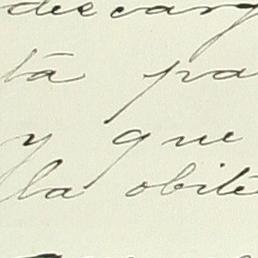 decarg
ta pa
y que
la obite